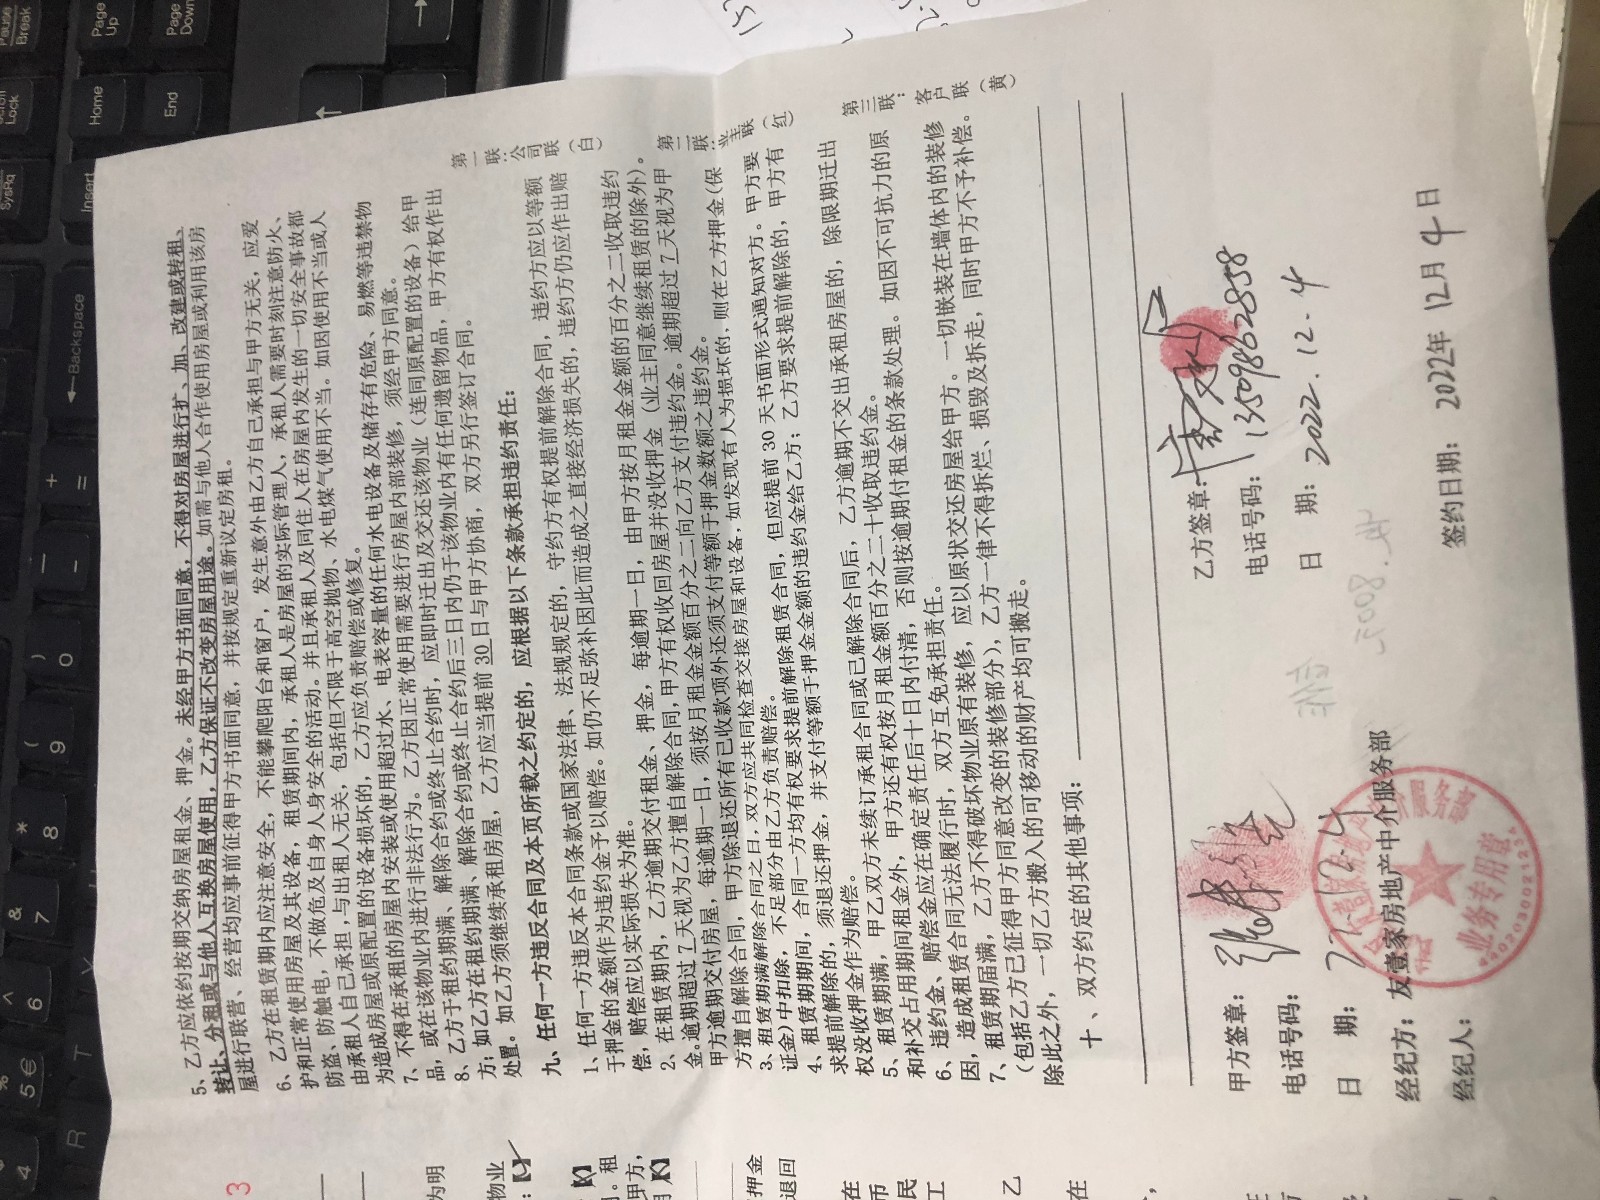 5、乙方应依约按期交纳房屋租金、押金。未经甲方书面同意，不得对房屋进行扩、加、改建或转租、
转让、分租或与他人互换房屋使用，乙方保证不改变房屋用途。如需与他人合作使用房屋或利用该房
屋进行联营、经营均应事前征得甲方书面同意，并按规定重新议定房租。
6、乙方在租赁期内应注意安全，不能攀爬阳台和窗户，发生意外由乙方自己承担与甲方无关，应爱
护和正常使用房屋及其设备，租赁期间内，承租人是房屋的实际管理人，承租人需要时刻注意防火、
防盗、防触电，不做危及自身人身安全的活动。并且承租人及同住人在房屋内发生的一切安全事故都
由承租人自己承担，与出租人无关，包括但不限于高空抛物、水电煤气使用不当。如因使用不当或人
为造成房屋或原配置的设备损坏的，乙方应负责赔偿或修复。
7、不得在承租的房屋内安装或使用超过水、电表容量的任何水电设备及储存有危险、易燃等违禁物
品，或在该物业内进行非法行为。乙方因正常使用需要进行房屋内部装修，须经甲方同意。
8、乙方于租约期满、解除合约或终止合约时，应即时迁出及交还该物业（连同原配置的设备）给甲
方；如乙方在租约期满、解除合约或终止合约后三日内仍于该物业内有任何遗留物品，甲方有权作出
处置。如乙方须继续承租房屋，乙方应当提前30日与甲方协商，双方另行签订合同。
九、任何一方违反合同及本页所载之约定的，应根据以下条款承担违约责任：
1、任何一方违反本合同条款或国家法律、法规规定的，守约方有权提前解除合同，违约方应以等额
于押金的金额作为违约金予以赔偿。如仍不足弥补因此而造成之直接经济损失的，违约方仍应作出赔
偿，赔偿应以实际损失为准。
2、在租赁期内，乙方逾期交付租金、押金，每逾期一日，由甲方按月租金金额的百分之二收取违约
金。逾期超过7天视为乙方擅自解除合同，甲方有权收回房屋并没收押金（业主同意继续租赁的除外）。
甲方逾期交付房屋，每逾期一日，须按月租金金额百分之二向乙方支付违约金。逾期超过7天视为甲
方擅自解除合同，甲方除退还所有已收款项外还须支付等额于押金数额之违约金。
3、租赁期满解除合同之日，双方应共同检查交接房屋和设备，如发现有人为损坏的，则在乙方押金（保
证金）中扣除，不足部分由乙方负责赔偿。
4、租赁期期间，合同一方均有权要求提前解除租赁合同，但应提前30天书面形式通知对方。甲方要
求提前解除的，须退还押金，并支付等额于押金金额的违约金给乙方；乙方要求提前解除的，甲方有
权没收押金作为赔偿。
5、租赁期满，甲乙双方未续订承租合同或已解除合同后，乙方逾期不交出承租房屋的，除限期迁出
和补交占用期间租金外，甲方还有权按月租金额百分之三十收取违约金。
6、违约金、赔偿金应在确定责任后十日内付清，否则按逾期付租金的条款处理。如因不可抗力的原
因，造成租赁合同无法履行时，双方互免承担责任。
7、租赁期届满，乙方不得破坏物业原有装修，应以原状交还房屋给甲方。一切嵌装在墙体内的装修
（包括乙方已征得甲方同意改变的装修部分），乙方一律不得拆烂、损毁及拆走，同时甲方不予补偿。
除此之外，一切乙方搬入的可移动的财产均可搬走。
十、双方约定的其他事项：
甲方签章：
电话号码：
日 期： 22.12.4
经纪方：友壹家房地产中介服务部
经纪人：
乙方签章：
电话号码：13509862858
日 期：2022.12.4
签约日期：2022年12月4日
第一联：公司联（白）
第二联：业主联（红）
第三联：客户联（黄）
业务专用章
Pause
Break
Page
Up
Page
Down
Scroll
Lock
Home
End
SysRq
Insert
←Backspace
3
为明
物业
押金
退回